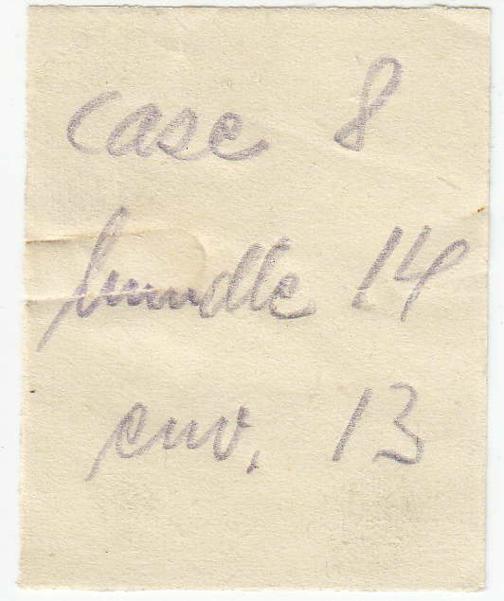 case 8
bundle 14
env. 13